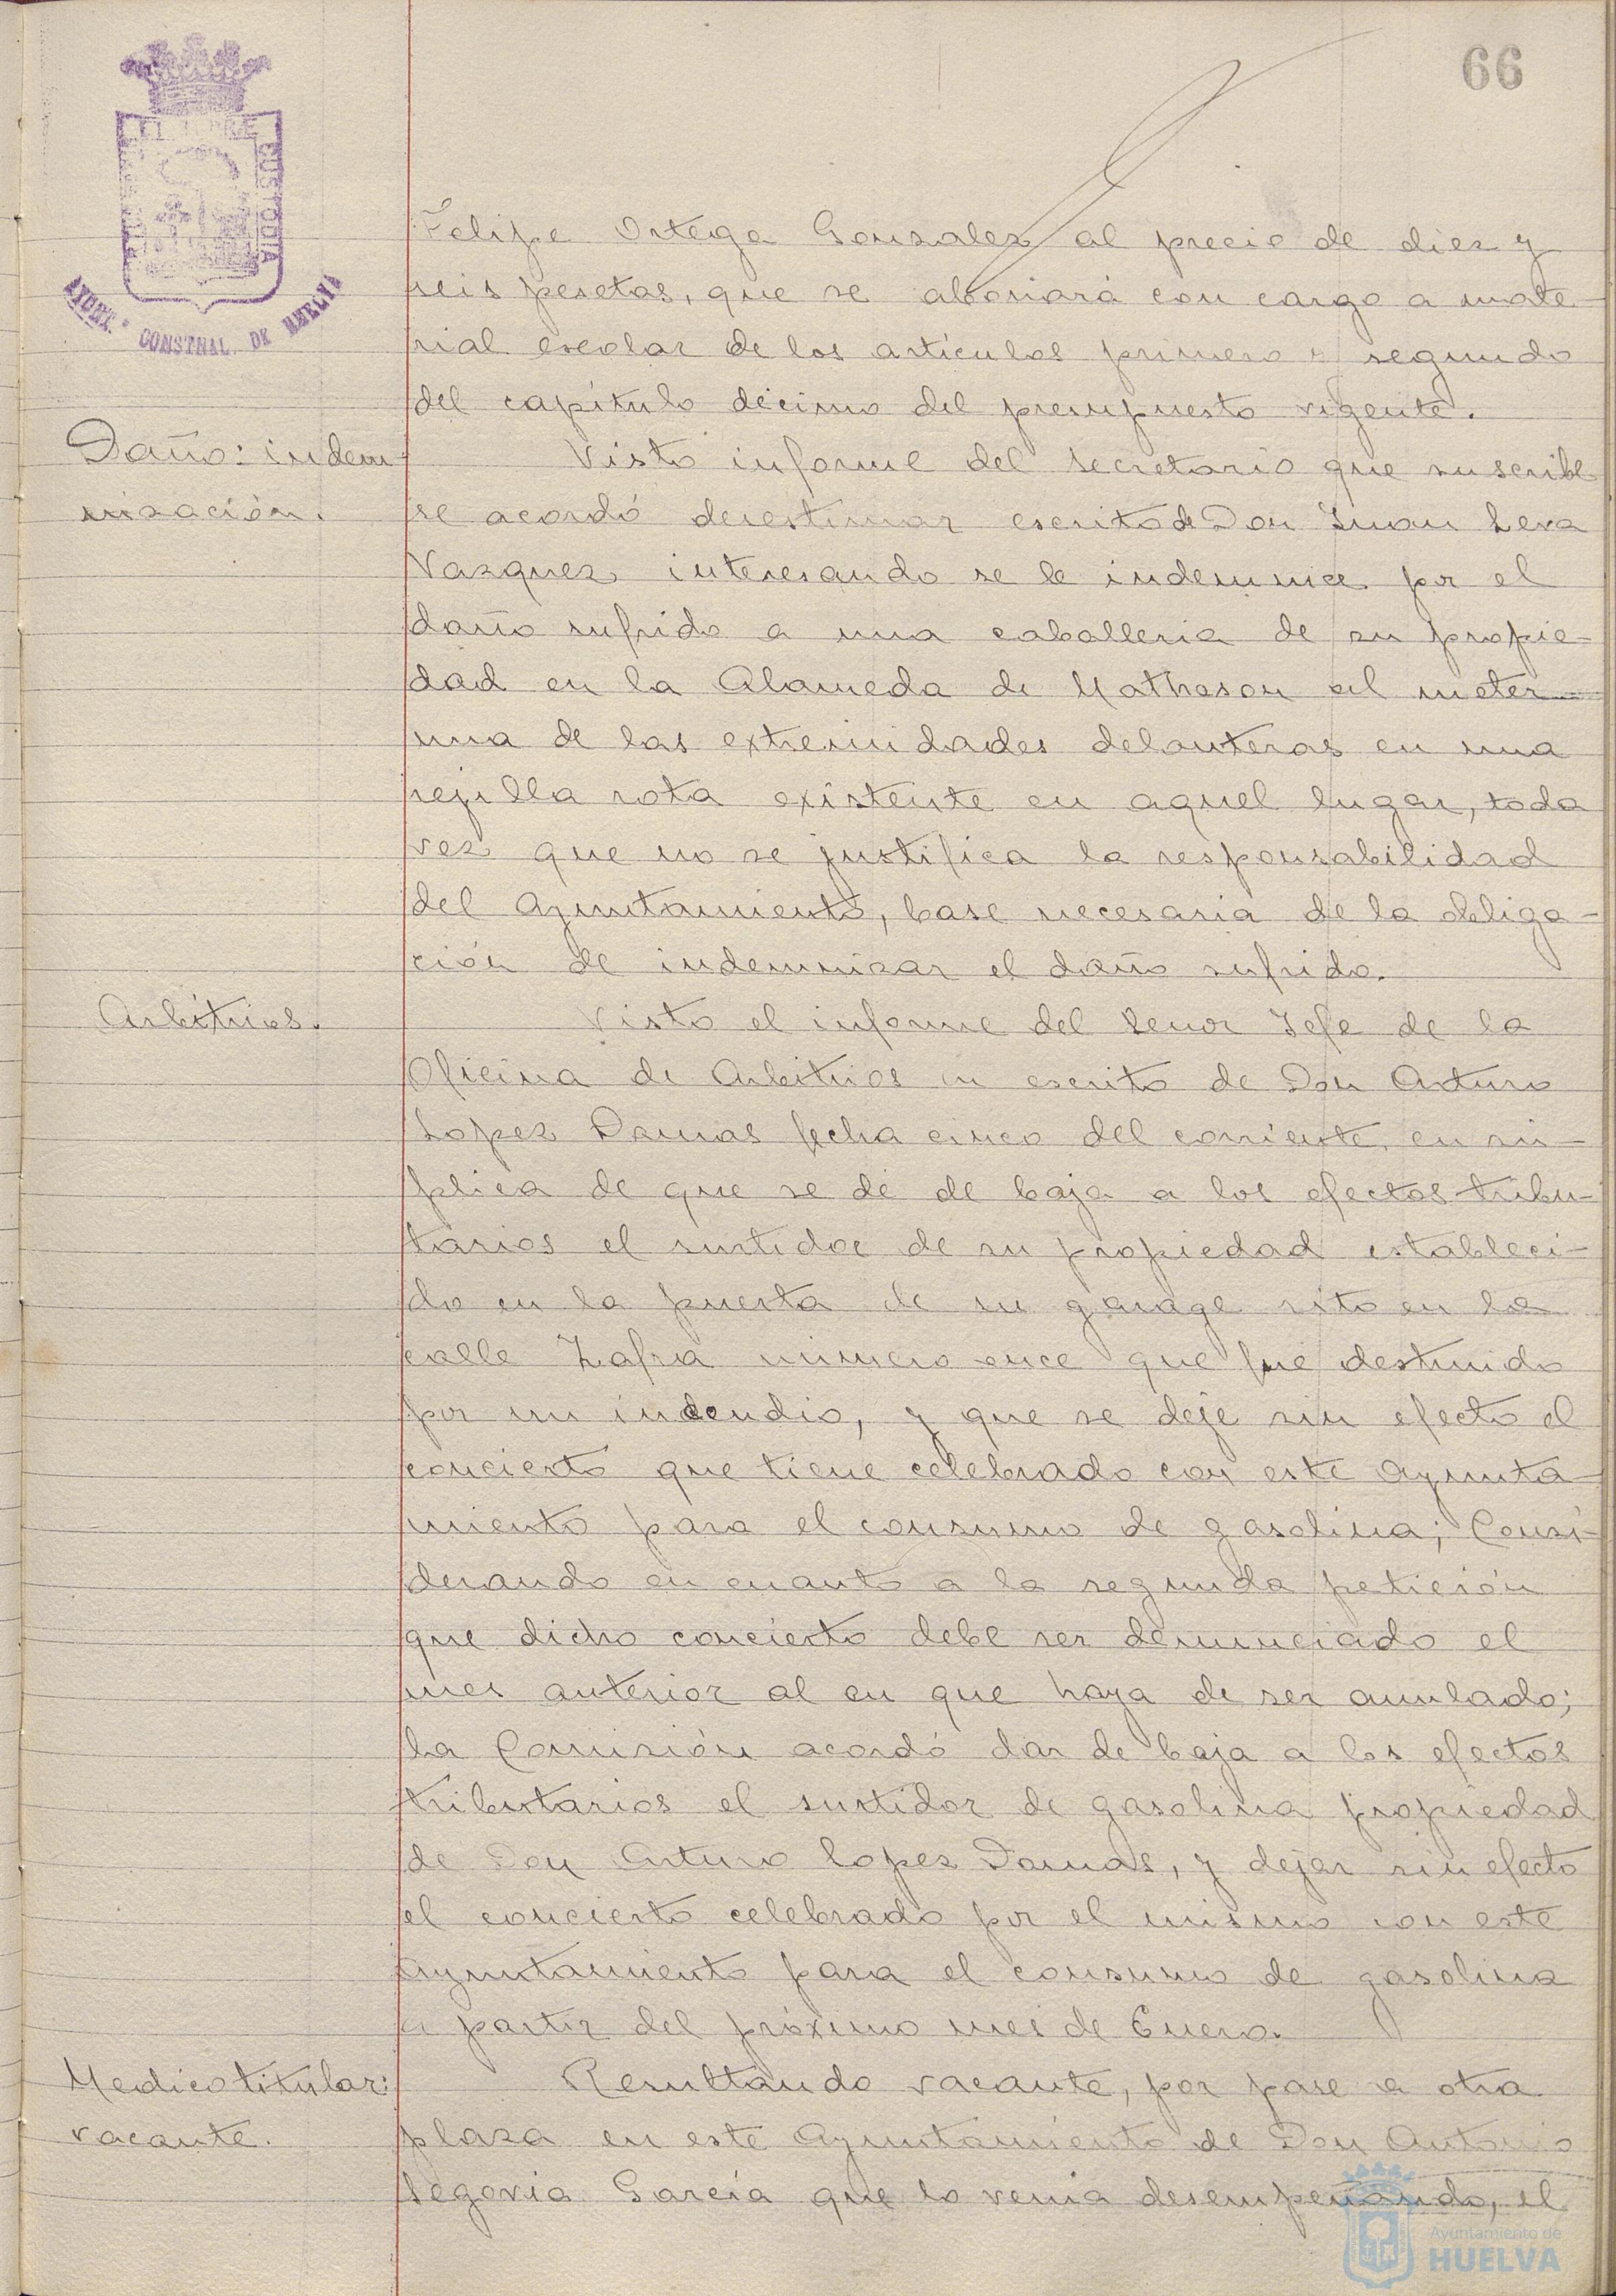 66
PORTUS
CUSTODIA
AYUNT.º CONSTNAL. DE HUELVA
Felipe Ortega Gonzalez al precio de diez y
seis pesetas, que se abonará con cargo a mate-
rial escolar de los artículos primero y segundo
del capítulo décimo del presupuesto vigente.
Daño: indem-
nización.
Visto informe del Secretario que suscribe
se acordó desestimar escrito de Don Juan Leva
Vazquez interesando se le indemnice por el
daño sufrido a una caballeria de su propie-
dad en la Alameda de Matheson al meter
una de las extremidades delanteras en una
rejilla rota existente en aquel lugar, toda
vez que no se justifica la responsabilidad
del Ayuntamiento, base necesaria de la obliga-
ción de indemnizar el daño sufrido.
Arbitrios.
Visto el informe del Senor Jefe de la
Oficina de Arbitrios en escrito de Don Arturo
Lopez Damas fecha cinco del corriente, en sú-
plica de que se dé de baja a los efectos tribu-
tarios el surtidor de su propiedad estableci-
do en la puerta de su garage sito en la
calle Zafra número once que fue destruido
por un incendio, y que se deje sin efecto el
concierto que tiene celebrado con este Ayunta-
miento para el consumo de gasolina; Consi-
derando en cuanto a la segunda petición
que dicho concierto debe ser denunciado el
mes anterior al en que haya de ser anulado;
La Comisión acordó dar de baja a los efectos
tributarios el surtidor de gasolina propiedad
de Don Arturo Lopez Damas, y dejar sin efecto
el concierto celebrado por el mismo con este
Ayuntamiento para el consumo de gasolina
a partir del próximo mes de Enero.
Medico titular:
vacante.
Resultando vacante, por pase a otra
plaza en este Ayuntamiento de Don Antonio
Segovia García que lo venia desempeñando, el
Ayuntamiento de
HUELVA